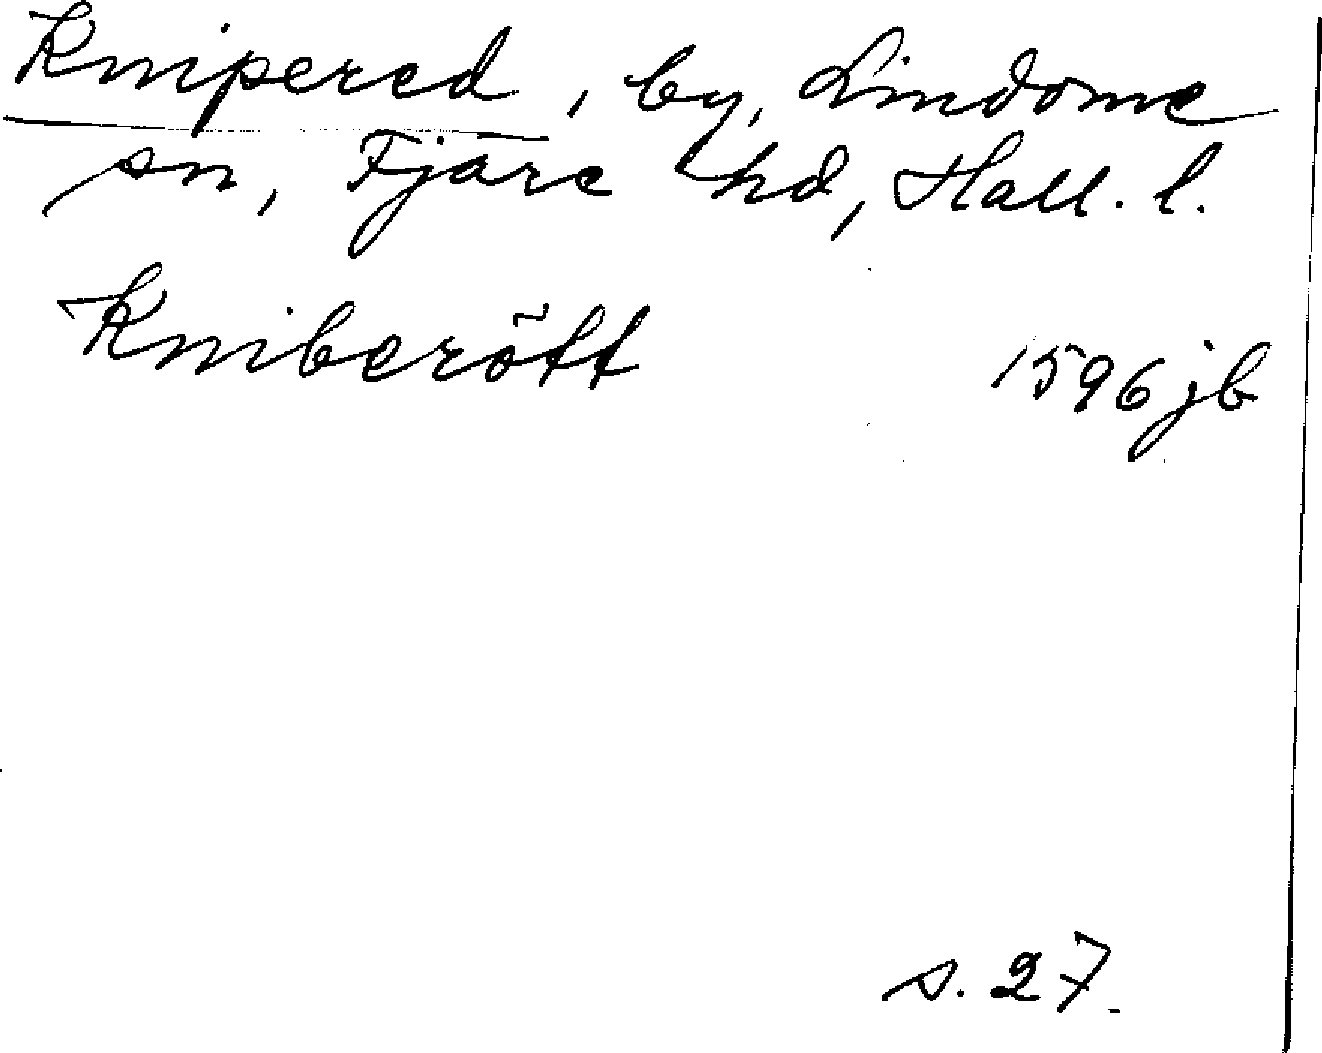 Knipered, by, Lindome
sn, Fjäre hd, Hall. l.
Kniberött 1596 jb
s. 27.